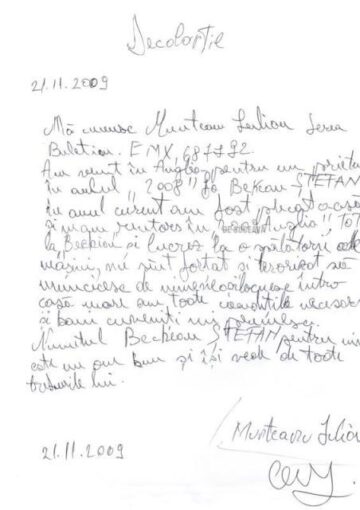 Decolarție
21.11.2009
Mă numesc Munteanu Iulian Seria
Buletion. EMX, 687792
Am venit în Anglia pentru un prieten
în anul "2008" la Beccan STEFAN
în anul curent am fost plecat acasă
și m-am rentors în "Anglia" Tot
la Beccan și lucrez la o spălătorie de
mașini, nu sînt fortat și terorizat să
muncesc de nimeni locuiesc într-o
casă mare am toate condițiile necesare
și banii cuveniți mi primesc.
Numitul Beccan STEFAN pentru mine
este un om bun și își vede de toate
treburile lui.
Munteanu Iulian
21.11.2009